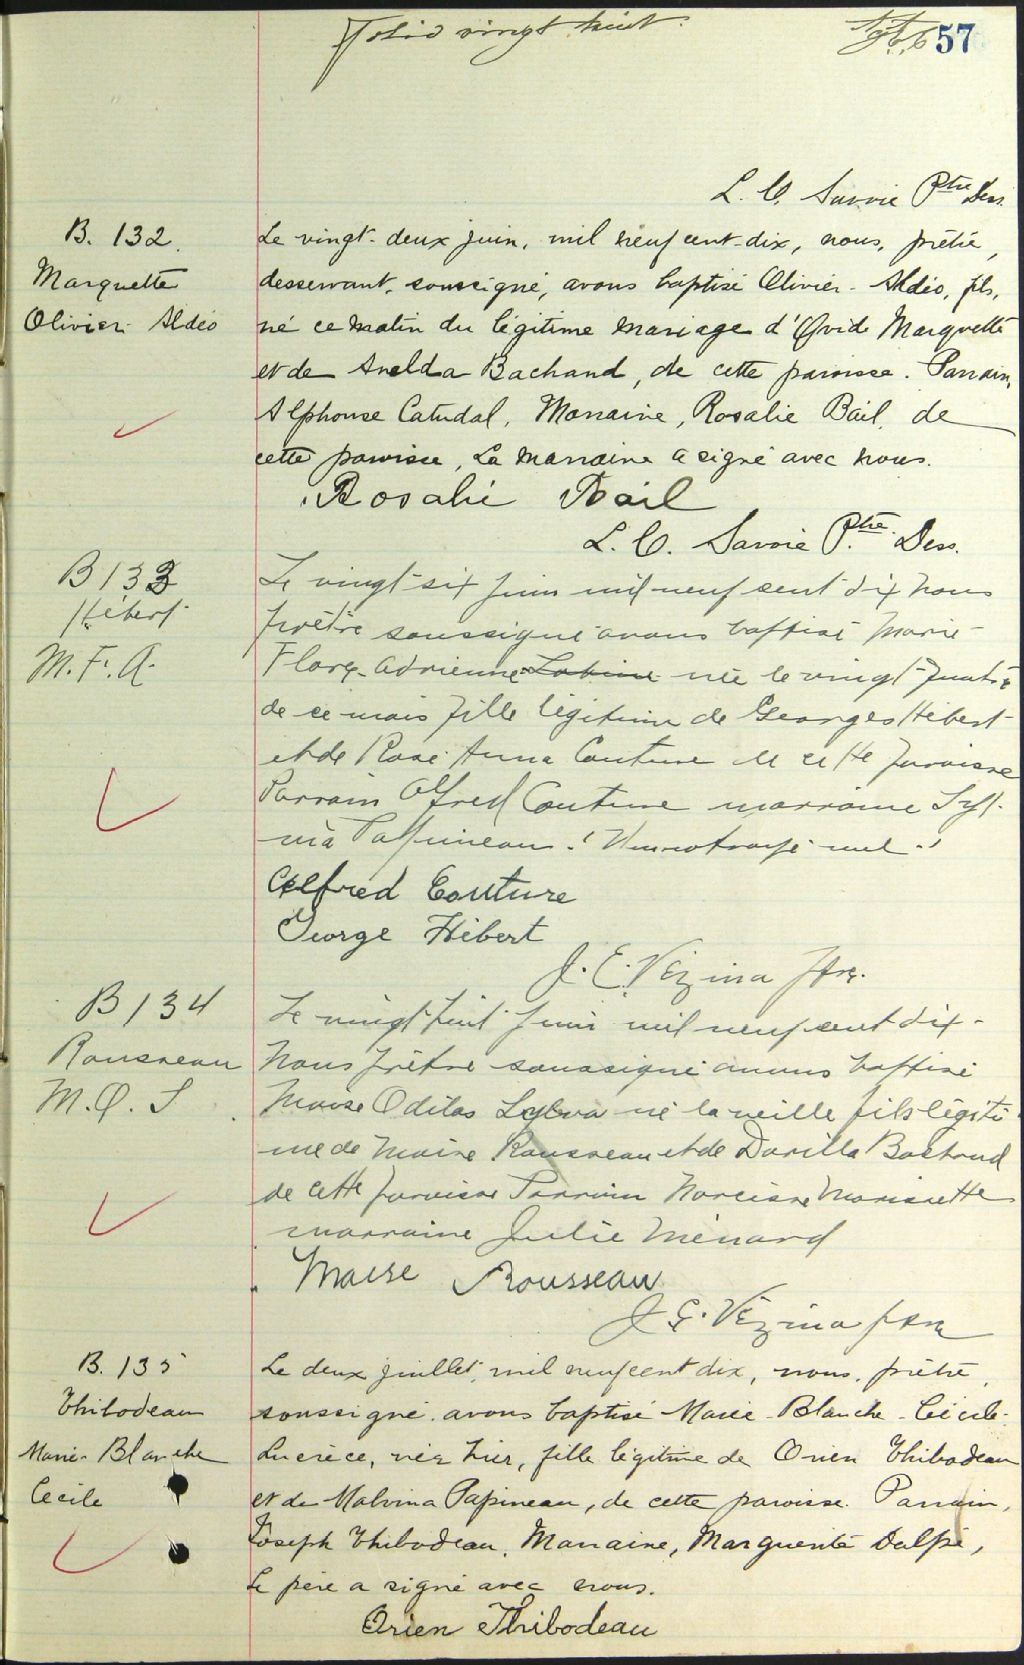 Folio vingt huit.
57
L. O. Savoie Ptre Dess.
B. 132.
Marquette
Olivier Aldéo
Le vingt-deux juin, mil neuf cent-dix, nous, prêtre,
desservant, soussigné, avons baptisé Olivier-Aldéo, fils,
né ce matin du légitime mariage d'Ovide Marquette
et de Anelda Bachand, de cette paroisse. Parrain,
Alphonse Catudal, Marraine, Rosalie Bail, de
cette paroisse, La marraine a signé avec nous.
Rosalie Bail
L. O. Savoie Ptre. Dess.
B 133
Hébert
M. F. A.
Le vingt-six juin mil neuf cent dix nous
prêtre soussigné avons baptisé Marie
Flore Adrienne née le vingt-quatre
de ce mois fille légitime de Georges Hébert
et de Rose Anna Couture de cette paroisse
Parrain Alfred Couture marraine Syl-
via Papineau. Un mot rayé nul.
Alfred Couture
George Hébert
J. E. Vézina ptre.
B 134
Rousseau
M. O. S
Le vingt huit juin mil neuf cent dix-
Nous prêtre soussigné avons baptisé
Moise Odilas Sylva né la veille fils légiti
me de Moise Rousseau et de Dorilla
de cette paroisse Parrain Narcisse Morissette
marraine Julie Ménard
Moise Rousseau
J. E. Vézina ptre
B. 135
Thibodeau
Marie-Blanche
Cécile
Le deux juillet, mil neuf cent dix, nous, prêtre,
soussigné avons baptisé Marie-Blanche-Cécile-
Lucrèce, née hier, fille légitime de Orien Thibodeau
et de Malvina Papineau, de cette paroisse. Parrain,
Joseph Thibodeau, Marraine, Marguerite Dalpé,
Le père a signé avec nous.
Orien Thibodeau